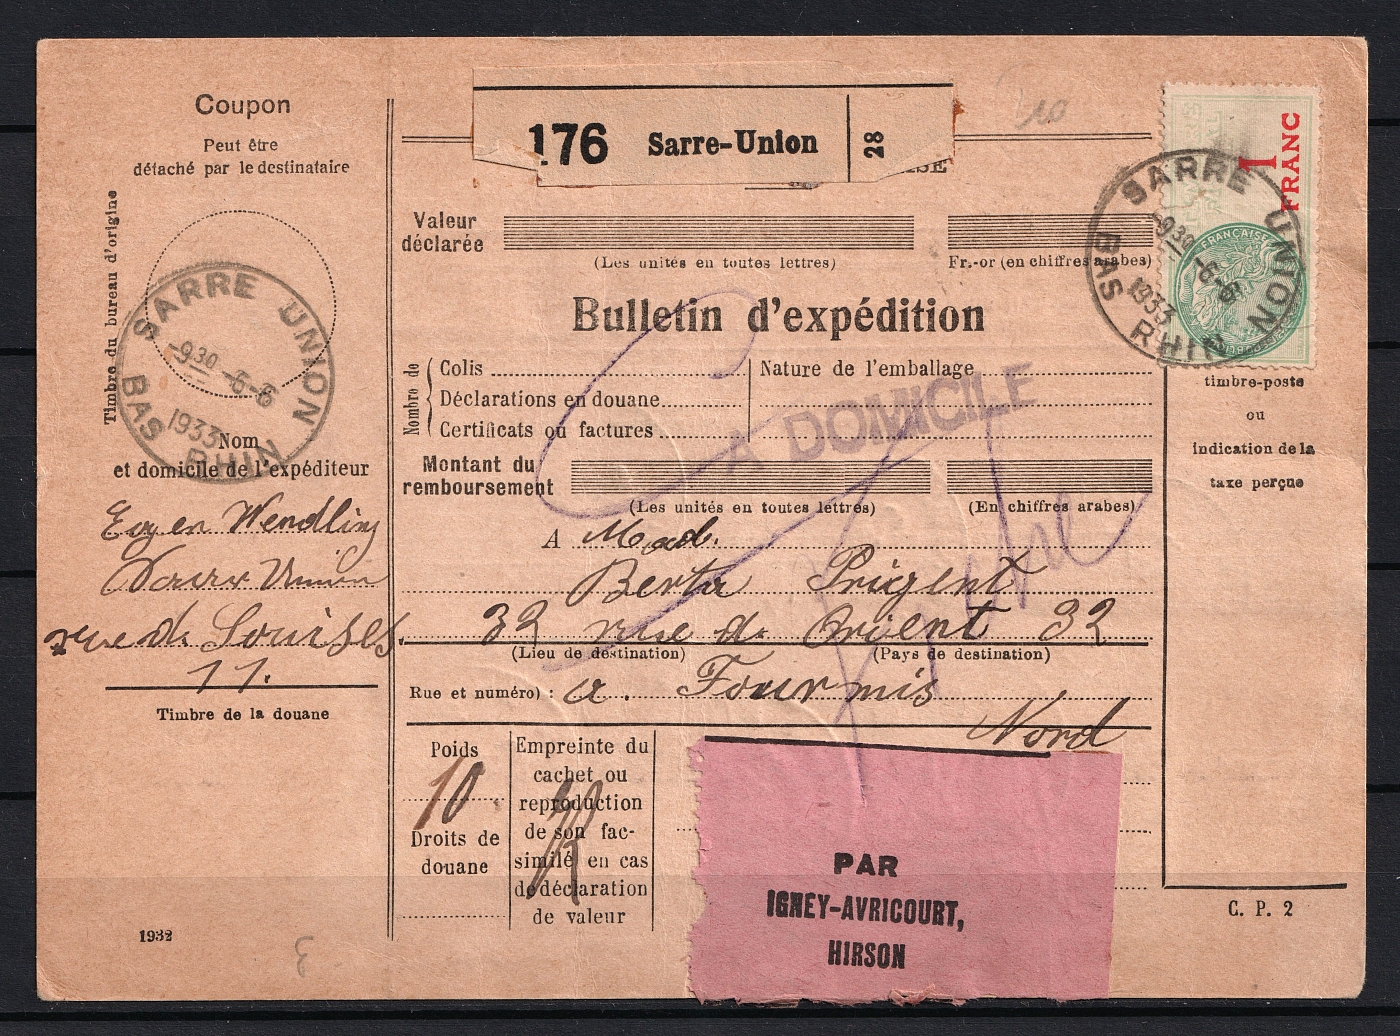 Coupon
Peut être
détaché par le destinataire
Timbre du bureau d'origine
SARRE UNION
9 30 -6-6
1933
BAS RHIN
Nom
et domicile de l'expéditeur
Eugen Wendling
Sarre Union
rue de Louises
11.
Timbre de la douane
1932
3
176 Sarre-Union 28
Valeur
déclarée
(Les unités en toutes lettres)
Fr.-or (en chiffres arabes)
Bulletin d'expédition
Nombre de
Colis
Nature de l'emballage
Déclarations en douane
Certificats ou factures
A DOMICILE
Montant du
remboursement
(Les unités en toutes lettres)
(En chiffres arabes)
A Mad.
Berta Prigent
32 rue de Orient 32
(Lieu de destination)
(Pays de destination)
Rue et numéro) : a. Fourmis
Nord
Poids
10
Droits de
douane
Empreinte du
cachet ou
reproduction
de son fac-
similé en cas
de déclaration
de valeur
PAR
IGNEY-AVRICOURT,
HIRSON
1
FRANC
FRANÇAISE
SARRE UNION
-9 30 -6-6
1933
BAS RHIN
timbre-poste
ou
indication de la
taxe perçue
C. P. 2